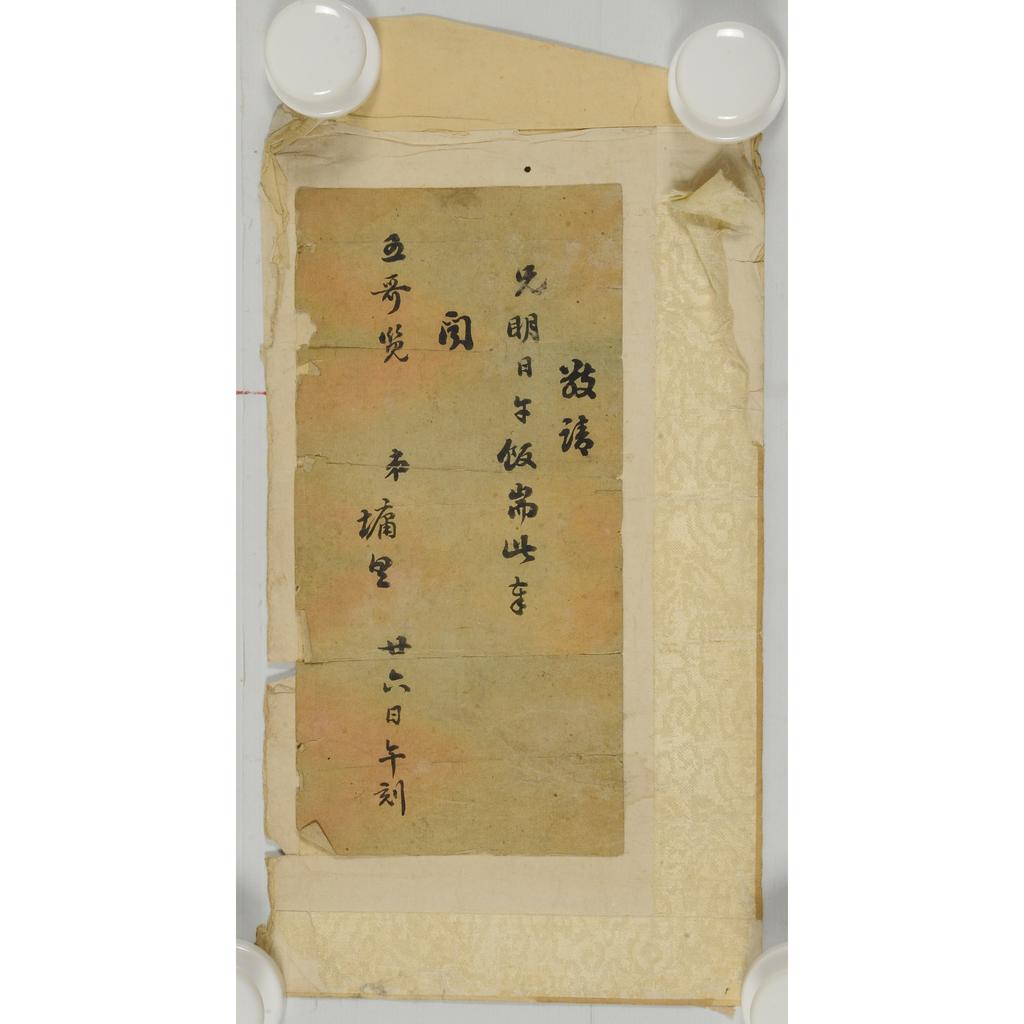 敬請
兄明日午飯耑此奉
聞
五哥覽 弟墉具 廿六日午刻